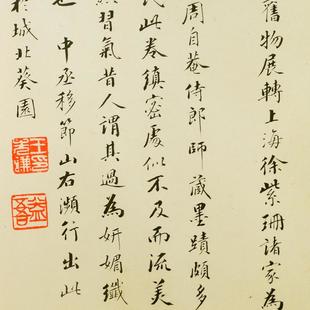 舊物展轉上海徐紫珊諸家為
周自菴侍郎師藏墨蹟頗多
此卷縝密處似不及而流美
習氣昔人謂其過為妍媚纖
也 中丞移節山右瀕行出此
於城北葵園
王印先謙
益吾